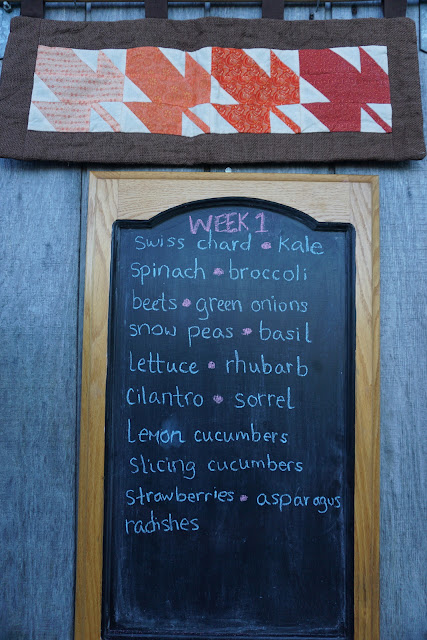 WEEK 1
Swiss chard • Kale
spinach • broccoli
beets • green onions
snow peas • basil
lettuce • rhubarb
cilantro • sorrel
Lemon cucumbers
slicing cucumbers
strawberries • asparagus
radishes